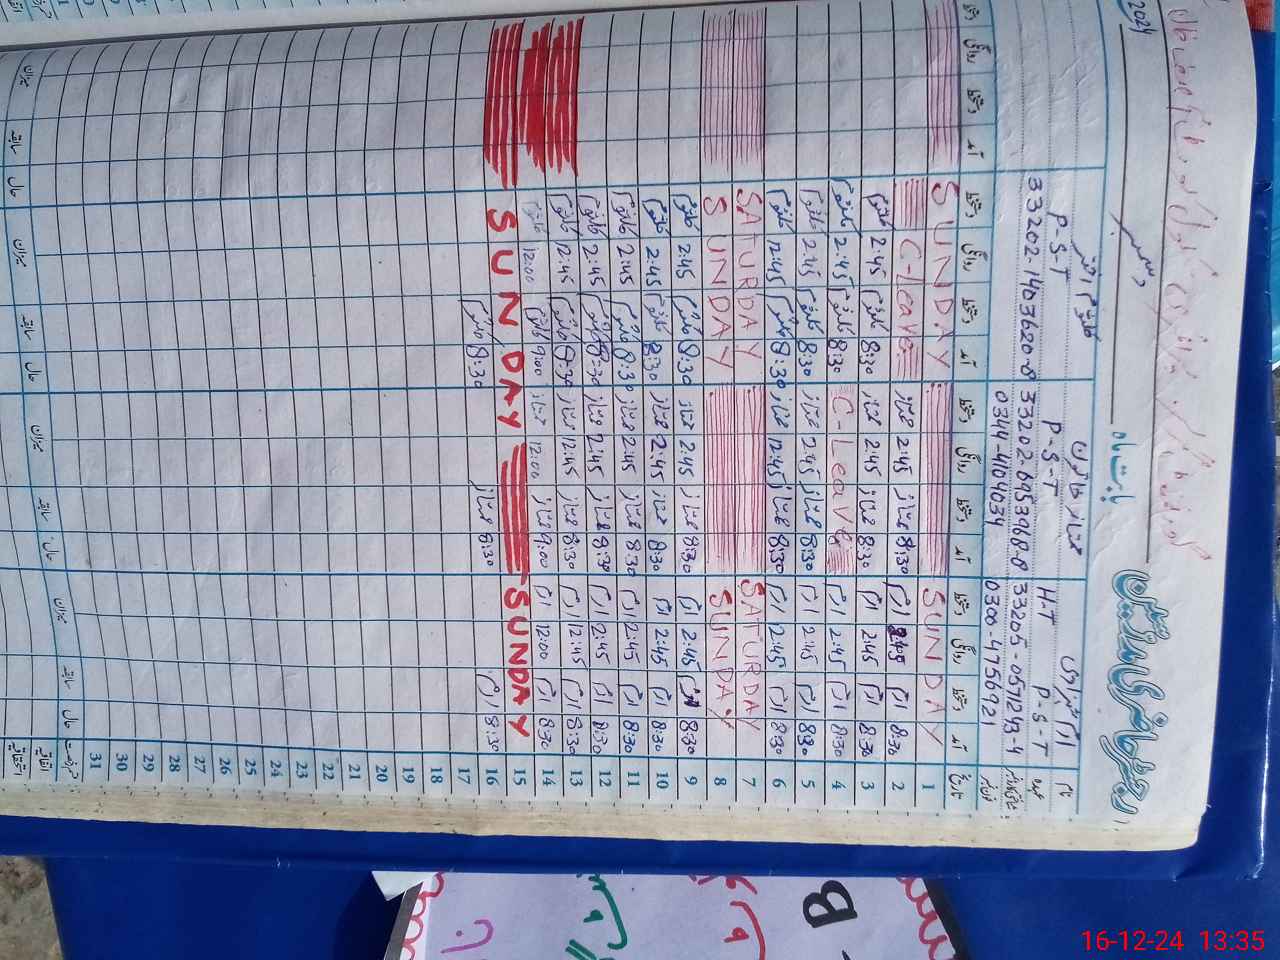 رجسٹر حاضری مدرسین
بابت ماہ دسمبر 2024
نام ارم شہزادی ممتاز خاتون کلثوم اختر
عہدہ H-T P-S-T P-S-T P-S-T
33205-0571243-4 33202-6953968-8 33202-1403620-8
0300-4756921 0344-4104034
تاریخ آمد دستخط روانگی دستخط آمد دستخط روانگی دستخط آمد دستخط روانگی دستخط آمد دستخط روانگی دستخط
1 SUNDAY SUNDAY
2 8:30 ارم 2:45 ارم 8:30 ممتاز 2:45 ممتاز C-leave
3 8:30 ارم 2:45 ارم 8:30 ممتاز 2:45 ممتاز 8:30 کلثوم 2:45 کلثوم
4 8:30 ارم 2:45 ارم C-Leave 8:30 کلثوم 2:45 کلثوم
5 8:30 ارم 2:45 ارم 8:30 ممتاز 2:45 ممتاز 8:30 کلثوم 2:45 کلثوم
6 8:30 ارم 12:45 ارم 8:30 ممتاز 12:45 ممتاز 8:30 کلثوم 12:45 کلثوم
7 SATURDAY SATURDAY
8 SUNDAY SUNDAY
9 8:30 ارم 2:45 ارم 8:30 ممتاز 2:45 ممتاز 8:30 کلثوم 2:45 کلثوم
10 8:30 ارم 2:45 ارم 8:30 ممتاز 2:45 ممتاز 8:30 کلثوم 2:45 کلثوم
11 8:30 ارم 2:45 ارم 8:30 ممتاز 2:45 ممتاز 8:30 کلثوم 2:45 کلثوم
12 8:30 ارم 2:45 ارم 8:30 ممتاز 2:45 ممتاز 8:30 کلثوم 2:45 کلثوم
13 8:30 ارم 12:45 ارم 8:30 ممتاز 12:45 ممتاز 8:30 کلثوم 12:45 کلثوم
14 8:30 ارم 12:00 ارم 9:00 ممتاز 12:00 ممتاز 9:00 کلثوم 12:00 کلثوم
15 SUNDAY SUNDAY
16 8:30 ارم 8:30 ممتاز 8:30 کلثوم
17
18
19
20
21
22
23
24
25
26
27
28
29
30
31
حال سابقہ میزان حال سابقہ میزان حال سابقہ میزان حال سابقہ میزان
اتفاقیہ
استحقاقیہ
B
16-12-24 13:35